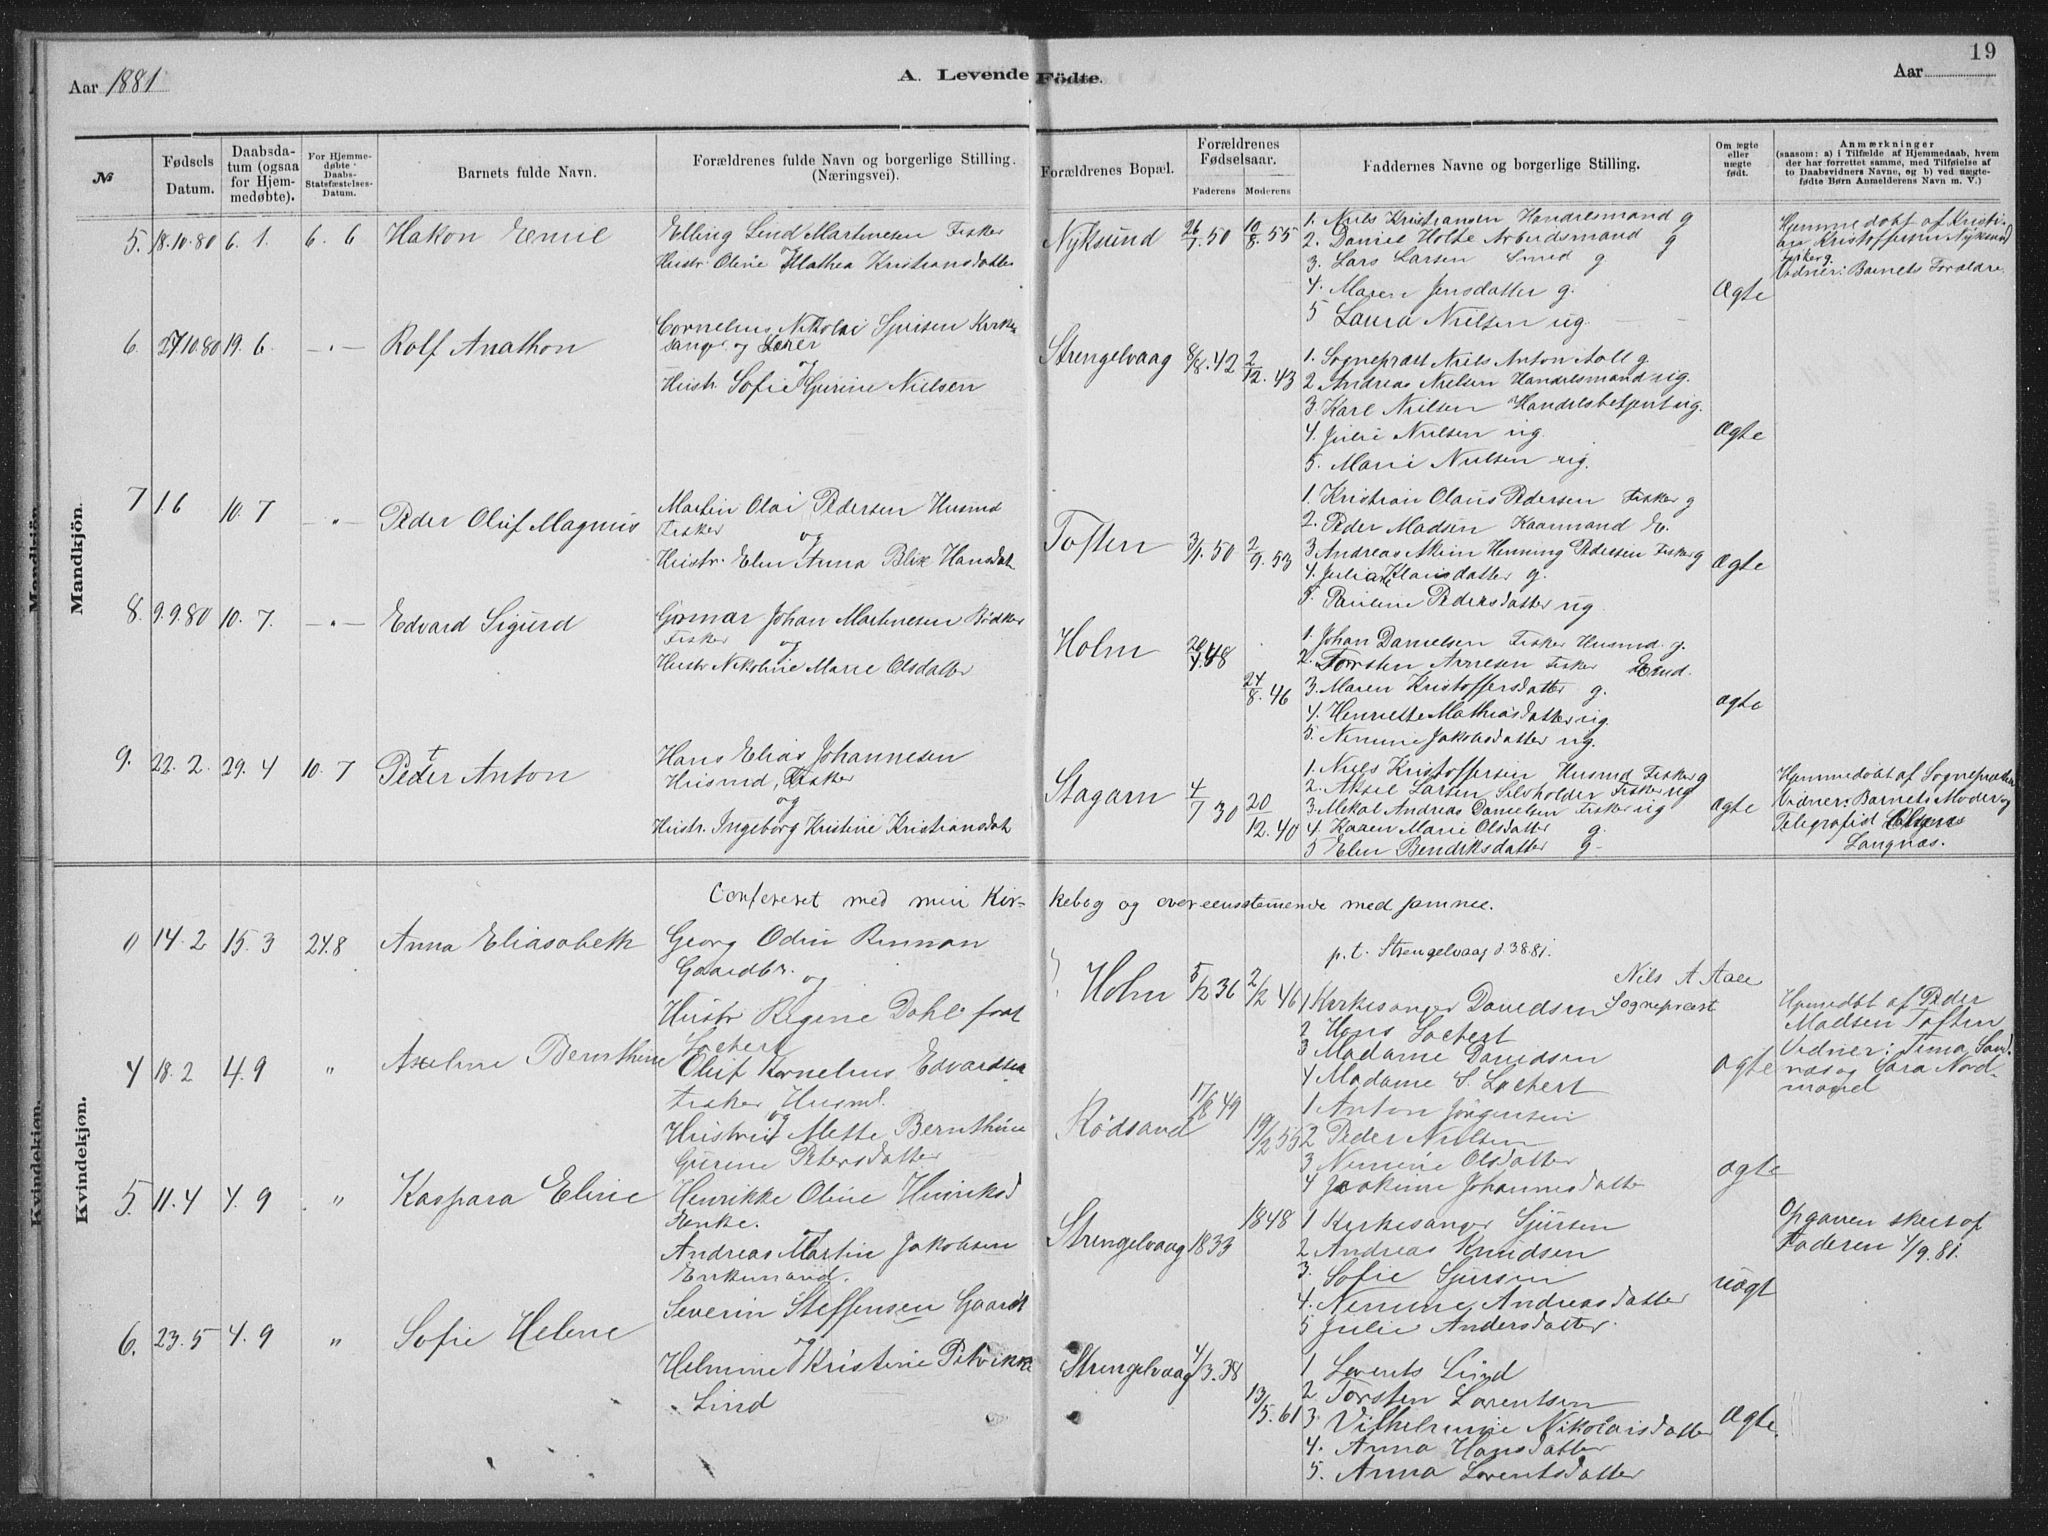 19
Aar 1881
A. Levende Födte.
Aar
№
Fødsels Datum.
Daabsdatum (ogsaa for Hjemmedøbte).
For Hjemmedøbte: Daabs-Statsfæstelses-Datum.
Barnets fulde Navn.
Forældrenes fulde Navn og borgerlige Stilling. (Næringsvei).
Forældrenes Bopæl.
Forældrenes Fødselsaar.
Faderens
Moderens
Faddernes Navne og borgerlige Stilling.
Om ægte eller uægte født.
Anmærkninger
(saasom: a) i Tilfælde af Hjemmedaab, hvem der har forrettet samme, med Tilføielse af to Daabsvidners Navne, og b) ved uægtefødte Børn Anmelderens Navn m. V.)
Mandkjön.
5. 18.10.80 6.1. 6.6 Hakon Emil
Elling Lind Martinesen Fisker
Hustr. Oline Mathea Kristiansdatter
Nyksund 26/7.50 10/8.55
1. Niels Kristiansen Handelsmand g
2. Daniel Holte Arbeidsmand g
3. Lars Larsen Smed g
4. Maren Jensdatter g.
5 Laura Nielsen ug.
Ægte
Hjemmedøbt af Kristi-
ane Kristoffersen Nyksund
Vidner: Barnets Forældre.
6. 27.10.80 19.6. -„- Rolf Anathon
Cornelius Nikolai Sjursen Kirke
sanger og Lærer
og
Hustr. Sofie Gurine Nielsen
Strengelvaag 8/8.42 2/12.43
1. Sogneprest Niels Anton Aall g.
2 Andreas Nielsen Handelsmand ug.
3. Karl Nielsen Handelsbetjent ug.
4. Julie Nielsen ug.
5. Marie Nielsen ug.
Ægte
7 1.6 10.7 -„- Peder Oluf Magnus
Martin Olai Pedersen Husmd
Fisker og
Hustr. Elen Anna Blix Hansdat
Toften 3/1.50 2/9.53
1. Kristian Olaus Pedersen Fisker g
2. Peder Madsen Kaarmand
3 Andreas Akim Henning Pedersen Fisker g
4. Juliane Klausdatter g.
5. Pauline Pedersdatter ug.
Ægte
8. 9.9.80 10.7. -„- Edvard Sigurd
Gomar Johan Martinesen Bødker
Fisker og
Hustr Nikoline Marie Olsdatter
Holm 48 24/8.46
1. Johan Danielsen Fisker Husmd. g.
2. Torsten Arnesen Fisker
3. Maren Kristoffersdatter g.
4. Henriette Mathiasdatter ug.
5. Nemine Jakobsdatter ug.
ægte
9. 22.2. 29.4 10.7 Peder Anton
Hans Elias Johannesen
Husmd, Fisker
og
Hustr. Ingeborg Kristine Kristiansdat
Stagarn 4/7 30 20/12.40
1. Niels Kristoffersen Husmd Fisker g
2. Aksel Larsen Selvholder Fisker ug
3. Mekal Andreas Danielsen Fisker ug
4 Karen Marie Olsdatter g.
5 Elen Bendiksdatter g-
ægte
Hjemmedøbt af Sognepræsten
Vidner: Barnets Moder og
Telegrafist
Langnæs.
Confereret med min Kir-
kebog og overeensstemmende med samme.
p. t. Strengelvaag d 3.8.81.
Nils A Aall
Sognepræst
Kvindekjøn.
14.2 15.3 24.8 Anna Eliasabeth
Georg Odin Rinnan
Gaardbr. og
Hustr Regine Dahl født
Lochert
Holm 5/2 36 2/2 46
1 Kirkesanger Davidsen
2 Hans Lochert
3 Madame Davidsen
4 Madame S. Lochert
ægte
Hjemmedøbt af Peder
Madsen Toften
Vidner: Tina Sand-
næs og Sara Nord-
4 18.2 4.9 „ Axeline Bernthine
Oluf Kornelius Edvardsen
Fisker Husmd.
og
Hustrue Mette Bernthine
Gurine Petersdatter
Rödsand 17/8 49 19/2 55
1 Anton Jörgensen
2 Peder Nielsen
3 Nemine Olsdatter
4 Joakime Johannesdatter
ægte
5. 11.4 4.9 „ Kaspara Eline
Henrikke Oline Hinriksd
Enke.
og
Andreas Martin Jakobsen
Enkemand.
Strengelvaag 1833 1848
1 Kirkesanger Sjursen
2 Andreas Knudsen
3. Sofie Sjursen
4. Nemine Andreasdatter
5 Julie Andersdatter.
uægt
Opgaven skeet af
Faderen 4/9.81.
6. 23.5 4.9 „ Sofie Helene
Severin Steffensen Gaardt
og
Helmine Kristine Petrikke
Lind
Strengelvaag 4/3.38 13/5.61
1 Lorents Lind
2 Torsten Lorentsen
3 Vilhelmine Nikolaisdatter
4. Anna Hansdatter
5. Anna Lorentsdatter
Ægte.